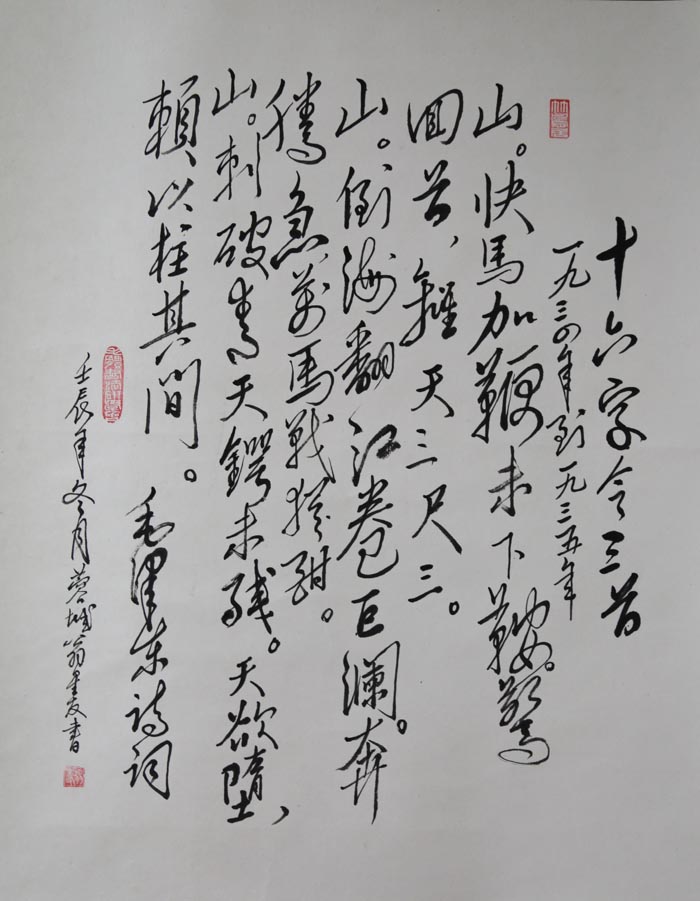 十六字令三首
一九三四年到一九三五年
山。快馬加鞭未下鞍。驚
回首,離天三尺三。
山。倒海翻江卷巨瀾。奔
騰急萬馬戰猶酣。
山。刺破青天鍔未殘。天欲墮,
賴以柱其間。
毛澤東詩詞
壬辰年冬月蓉城翁友書